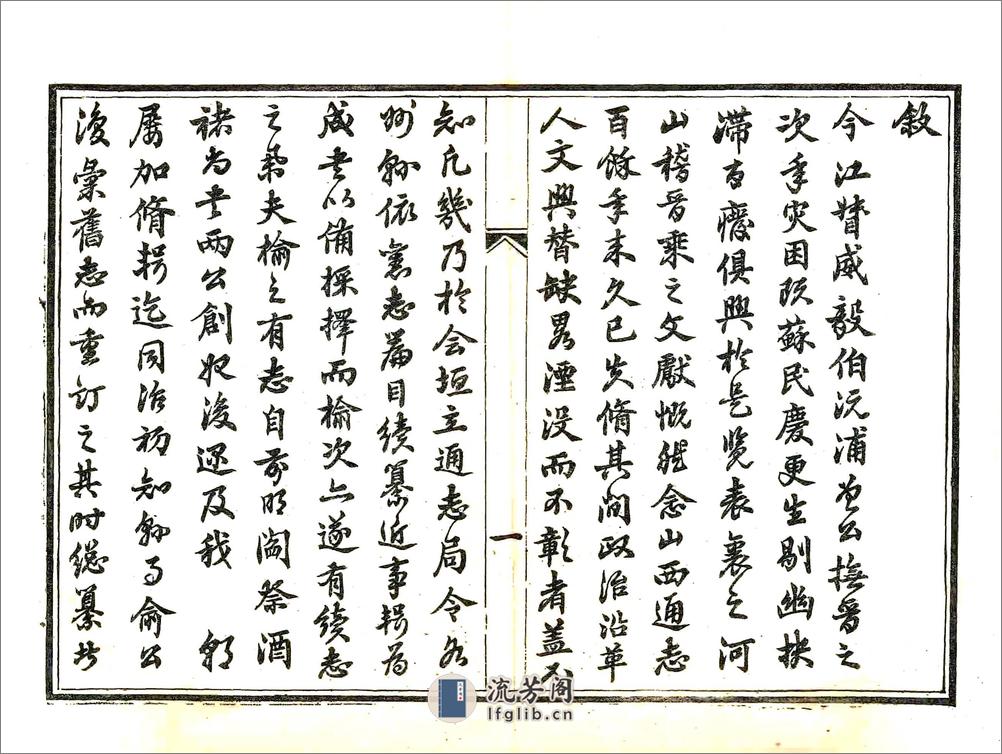 敘
今江督威毅伯沅浦曾公撫晉之
次年灾困既蘇民慶更生剔幽抉
滯百癈俱興於是覽表裏之河
山稽晉乘之文獻慨然念山西通志
百餘年来久已失脩其間政治沿革
人文興替缺畧湮没而不彰者蓋不
一
知凡幾乃於会垣立通志局令各
州縣依舊志篇目續纂近事輯為
成書以備採擇而榆次亦遂有續志
之舉夫榆之有志自前明閻祭酒
褚尚書兩公創始後及我 朝
屡加脩輯迄同治初知縣事俞公
復彙舊志而重訂之其時總纂者
流芳阁
lfglib.cn